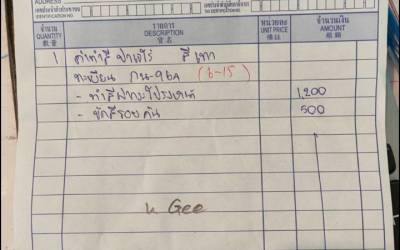 ADDRESS
เลขประจำตัวผู้เสียภาษีอากร
IDENTIFICATION NO.
จำนวน รายการ หน่วยละ จำนวนเงิน
QUANTITY DESCRIPTION UNIT PRICE AMOUNT
數量 貨名 價錢 銀額
1 ค่าทำสี ฟาเจโร่ สีเทา
ทะเบียน กน-96A (6-15)
- ทำสีฝากระโปรงหน้า 1,200
- ขัดสีรอบคัน 500
K Gee